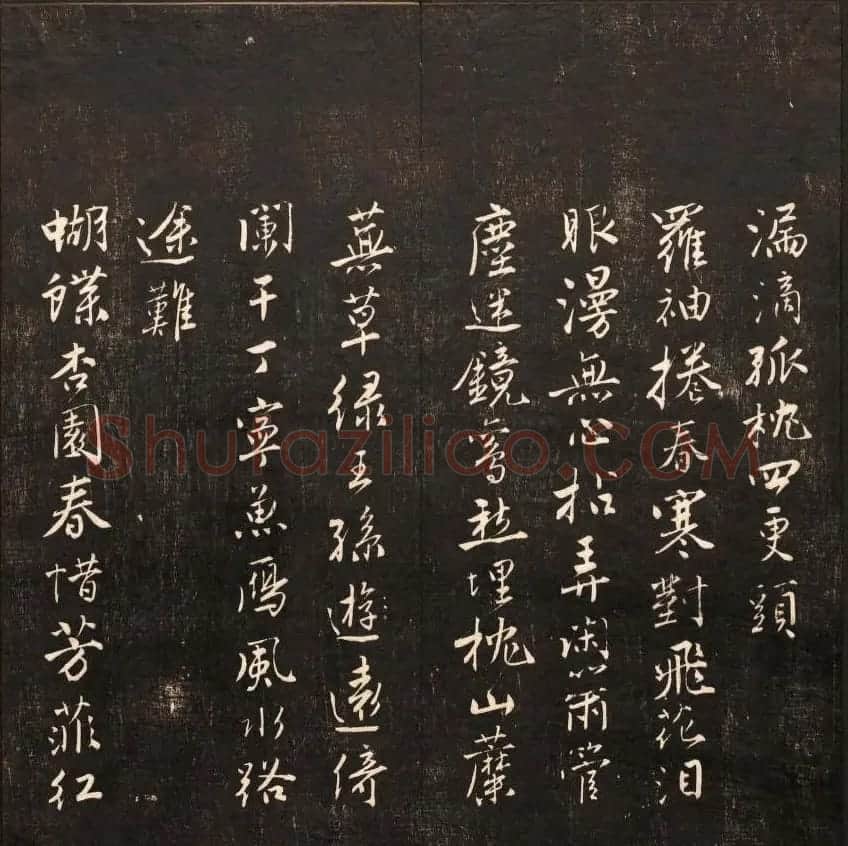 漏滴孤枕四更頭
羅袖捲春寒對飛花泪
眼漫無心拈弄閑簫管
塵迷鏡鸞愁埋枕山蘼
蕪草緑王孫遊遠倚
闌干丁寧魚鴈風水路
途難
蝴蝶杏園春惜芳菲紅
Shufaziliao.COM